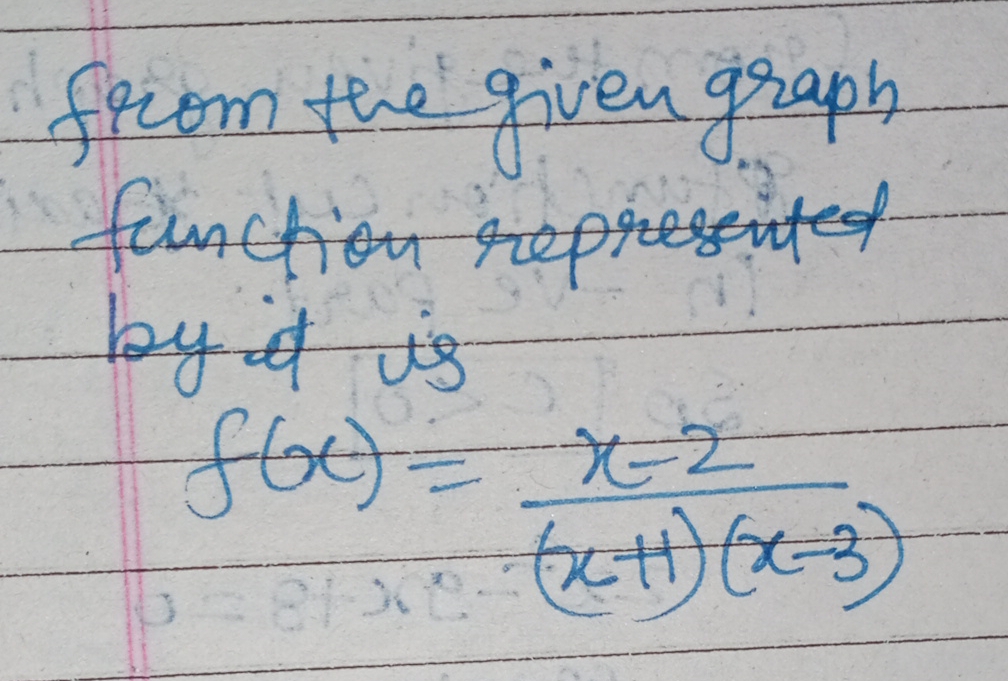 from the given graph
function represented
by it is
f(x) = x-2
(x+1)(x-3)